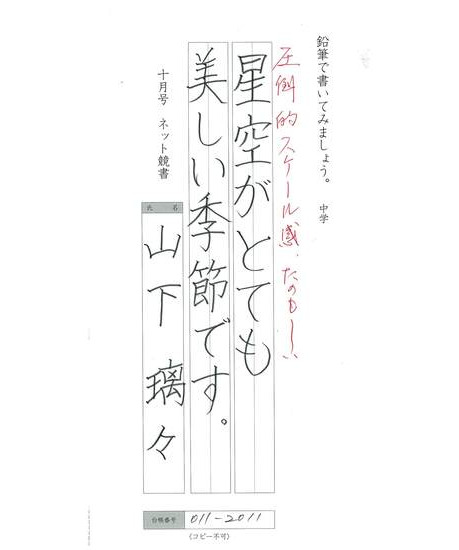 鉛筆で書いてみましょう。 中学
圧倒的スケール感、たのもしい
星空がとても
美しい季節です。
十月号 ネット競書
氏名
山下璃々
台帳番号 011-2011
(コピー不可)